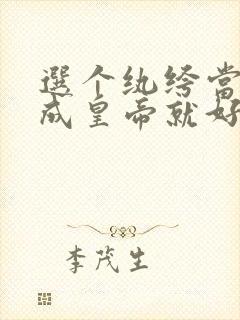 選个纨绔当
成皇帝就好
李茂生